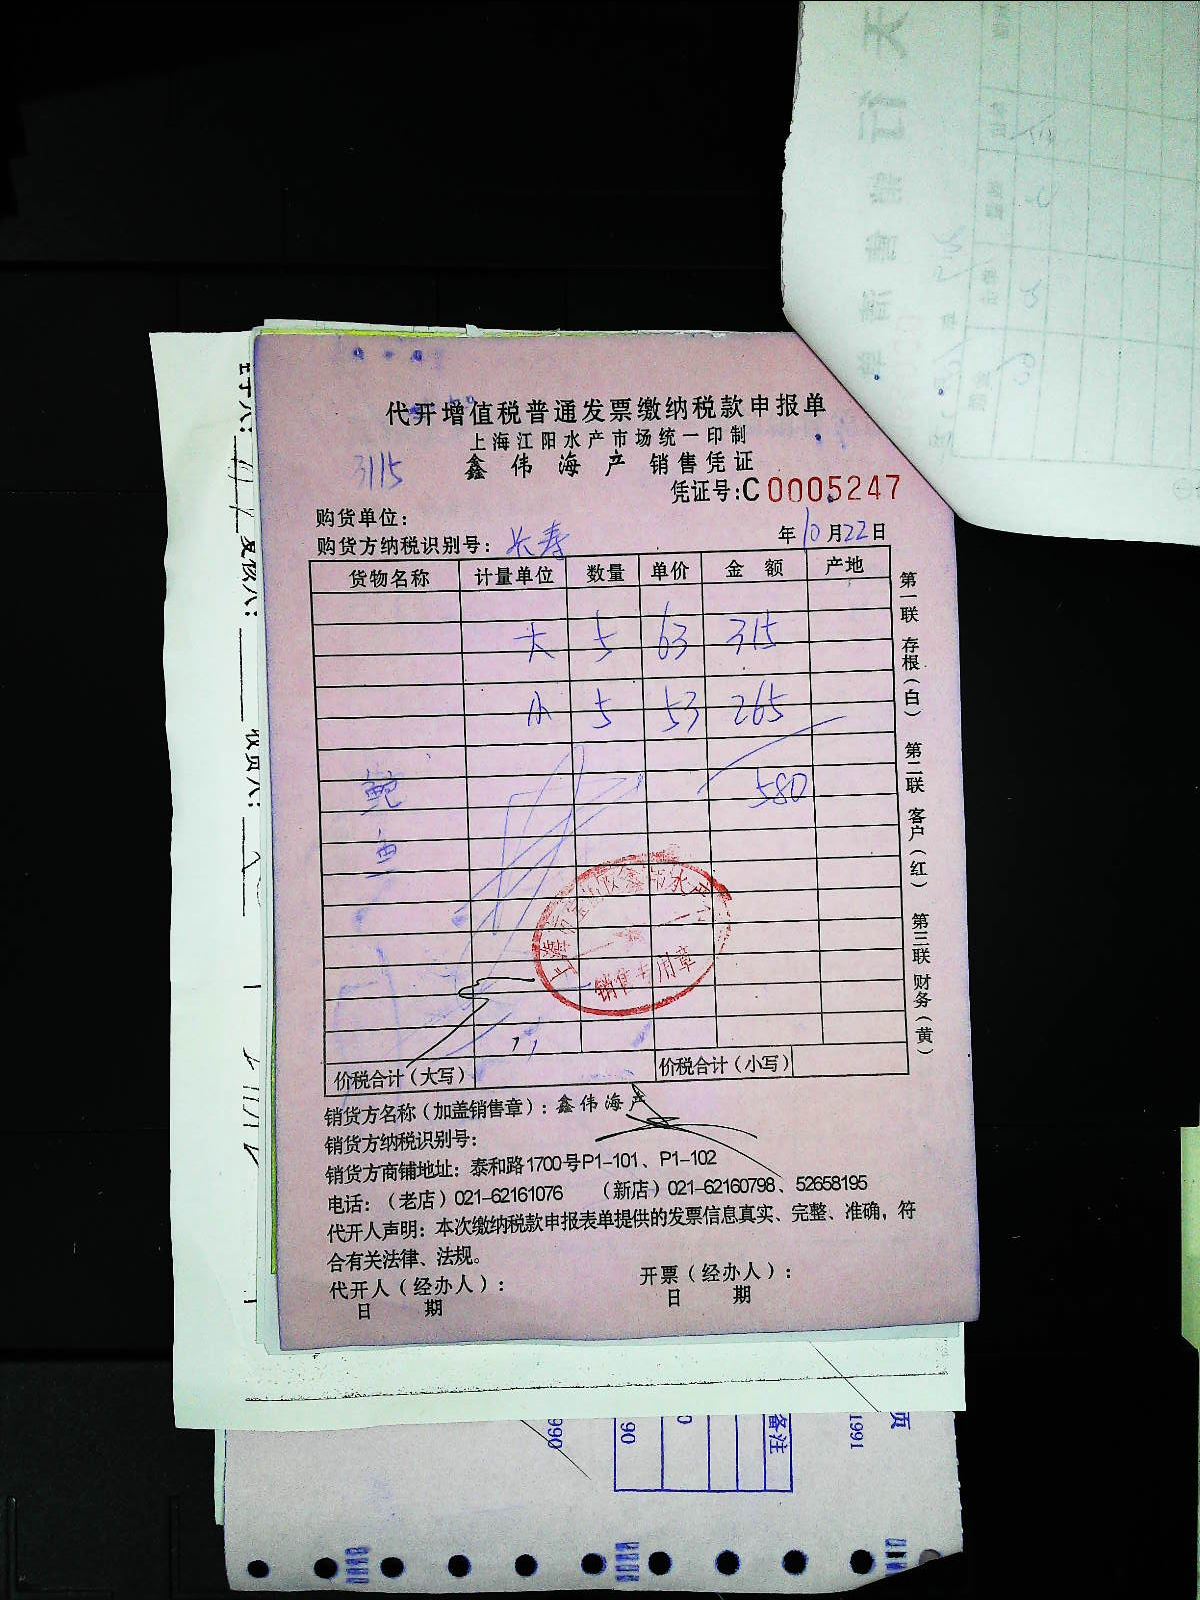 代开增值税普通发票缴纳税款申报单
上海江阳水产市场统一印制
3115
鑫伟海产 销售凭证
凭证号:C0005247
购货单位:
购货方纳税识别号: 长寿 年10月22日
货物名称 计量单位 数量 单价 金额 产地
大 5 63 315
小 5 53 265
580
鲍
鱼
销售专用章
价税合计(大写) 价税合计(小写)
第一联 存根(白) 第二联 客户(红) 第三联 财务(黄)
销货方名称(加盖销售章):鑫伟海产
销货方纳税识别号:
销货方商铺地址:泰和路1700号P1-101、P1-102
电话:(老店)021-62161076 (新店)021-62160798、52658195
代开人声明:本次缴纳税款申报表单提供的发票信息真实、完整、准确,符
合有关法律、法规。
代开人(经办人): 开票(经办人):
日 期 日 期
收货人:
备注
990
90
0
1991
页